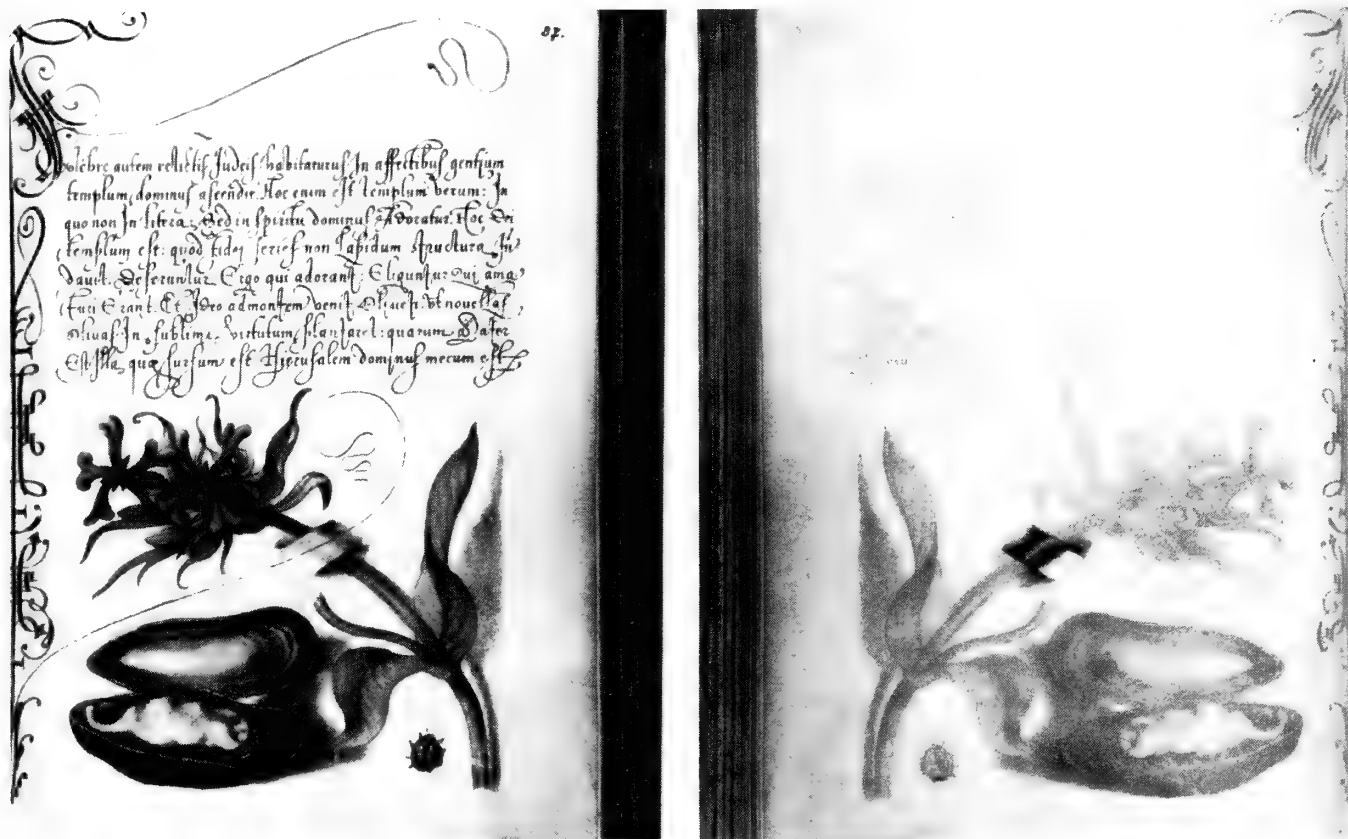 87.
Celebre autem relictis Judeis habitaturus In affectibus gentium
templum, dominus ascendit. Hoc enim est templum verum: In
quo non In litera: Sed in spiritu dominus Adoratur. Hoc Dei
templum est: quod fidei series non lapidum structura fun
dauit. Deseruntur Ergo qui adorant: Eliguntur qui ama
turi Erant. Et Ideo ad montem venit Oliueti: Vt nouellas
oliuas In sublime virtutum plantaret: quarum Mater
Est Illa, quæ sursum est Hierusalem dominus mecum est